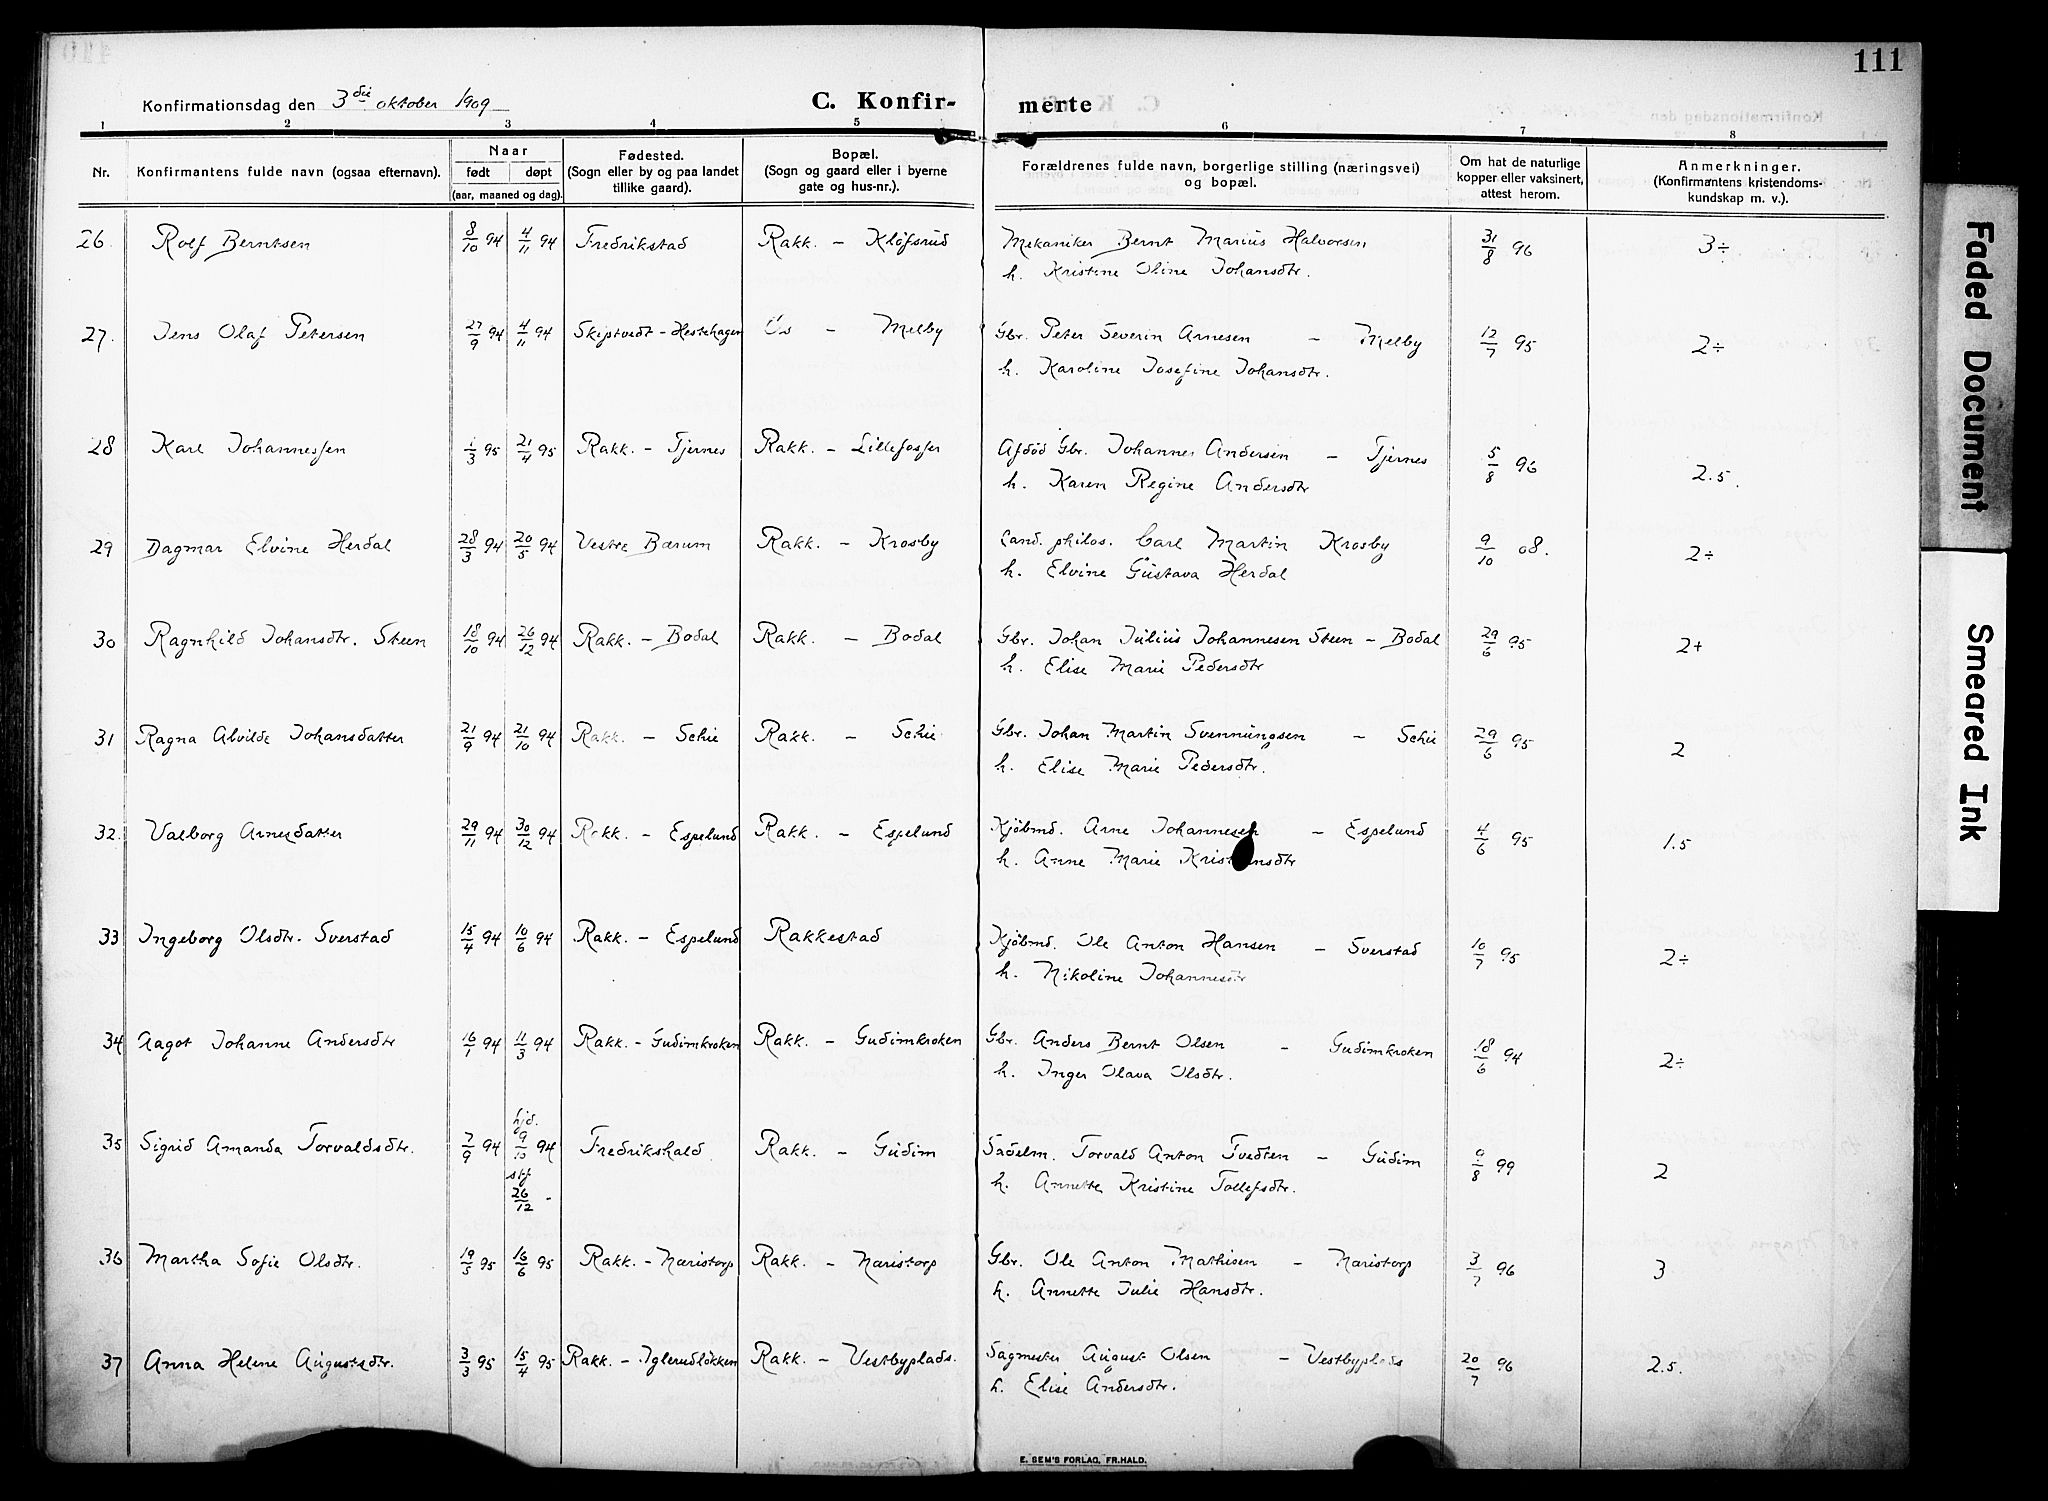 111
Konfirmationsdag den 3die oktober 1909
C. Konfir- merte
1 2 3 4 5 6 7 8
Nr. Konfirmantens fulde navn (ogsaa efternavn). Naar født døpt (aar, maaned og dag). Fødested. (Sogn eller by og paa landet tillike gaard). Bopæl. (Sogn og gaard eller i byerne gate og hus-nr.). Forældrenes fulde navn, borgerlige stilling (næringsvei) og bopæl. Om hat de naturlige kopper eller vaksinert, attest herom. Anmerkninger. (Konfirmantens kristendoms- kundskap m. v.).
26. Rolf Berntsen 8/10 94 4/11 94 Fredrikstad Rakk. - Kløfsrud Mekaniker Bernt Marius Halvorsen 31/8 96 3÷
h. Kristine Oline Johansdtr.
27. Jens Olaf Petersen 27/9 94 4/11 94 Skiptvedt - Hestehagen Os - Melby Gbr. Peter Severin Arnesen - Melby 12/7 95 2÷
h. Karoline Josefine Johansdtr.
28 Karl Johannessen 1/3 95 21/4 95 Rakk. - Tjernes Rakk. - Lillefosser Afdød Gbr. Johannes Andersen - Tjernes 5/8 96 2.5.
h. Karen Regine Andersdtr
29 Dagmar Elvine Herdal 28/3 94 20/5 94 Vestre Bærum Rakk. - Krosby Cand. philos. Carl Martin Krosby 9/10 08. 2÷
h. Elvine Gustava Herdal
30 Ragnhild Johansdtr. Steen 18/10 94 26/12 94 Rakk. - Bodal Rakk. - Bodal Gbr. Johan Julius Johannesen Steen - Bodal 29/6 95 2+
h. Elise Marie Pedersdtr
31 Ragna Alvilde Johansdatter 21/9 94 21/10 94 Rakk. - Schie Rakk. - Schie Gbr. Johan Martin Svenningsen - Schie 29/6 95 2
h. Elise Marie Pedersdtr.
32. Valborg Arnesdatter 29/11 94 30/12 94 Rakk. - Espelund Rakk. - Espelund Kjøbmd. Arne Johannesen - Espelund 4/6 95 1.5
h. Anne Marie Kristiansdtr
33 Ingeborg Olsdtr. Sverstad 15/4 94 10/6 94 Rakk. - Espelund Rakkestad Kjøbmd. Ole Anton Hansen - Sverstad 10/7 95 2÷
h. Nikoline Johannesdtr
34 Aagot Johanne Andersdtr 16/1 94 11/3 94 Rakk. - Gudimkroken Rakk. - Gudimkroken Gbr. Anders Bernt Olsen - Gudimkroken 18/6 94 2÷
h. Inger Olava Olsdtr.
35 Sigrid Amanda Torvaldsdtr. 7/9 94 hjd. 9/10 94 stf 26/12 - Fredrikshald Rakk. - Gudim Sadelm. Torvald Anton Tvedten - Gudim 9/8 99 2
h. Annette Kristine Tollefsdtr.
36 Martha Sofie Olsdtr. 19/5 95 16/6 95 Rakk. - Næristorp Rakk. - Næristorp Gbr. Ole Anton Mathisen - Næristorp 3/7 96 3
h. Annette Julie Hansdtr.
37 Anna Helene Augustsdtr. 3/3 95 15/4 95 Rakk. - Iglerudløkken Rakk. - Vestbyplads. Sagmester August Olsen - Vestbyplads 20/7 96 2.5.
h. Elise Andersdtr.
E. SEM'S FORLAG, FR.HALD.
Faded Document
Smeared Ink